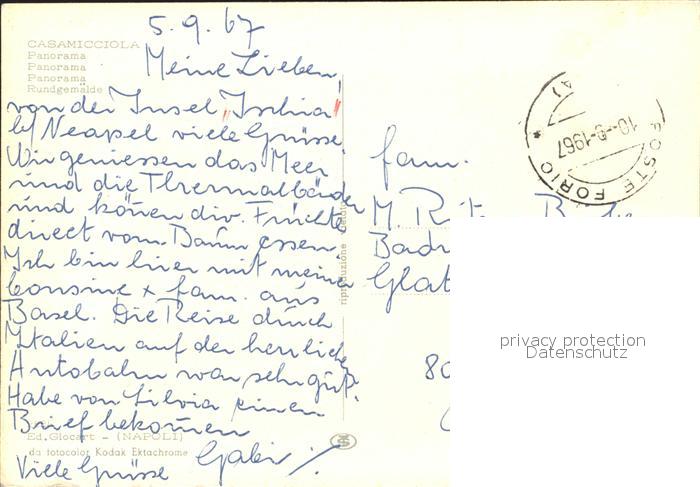 5.9.67
CASAMICCIOLA
Panorama
Panorama
Panorama
Rundgemälde
Meine Lieben,
von der Insel "Ischia"
b/ Neapel viele Grüsse.
Wir geniessen das Meer
und die Thermalbäder
und können div. Früchte
direct vom Baum essen.
Ich bin hier mit meiner
Cousine + Fam. aus
Basel. Die Reise durch
Italien auf der herrlichen
Autobahn war sehr gut.
Habe von Silvia einen
Brief bekommen
Ed. Giocart - (NAPOLI)
da fotocolor Kodak Ektachrome
Viele Grüsse Gabi
riproduzione
Fam.
M.
Glat
80
POSTE FORIO
10-9-1967
privacy protection
Datenschutz